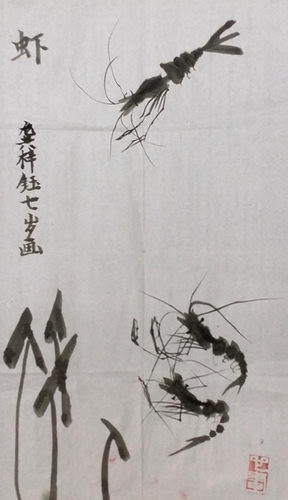 虾
龚祥钰七岁画